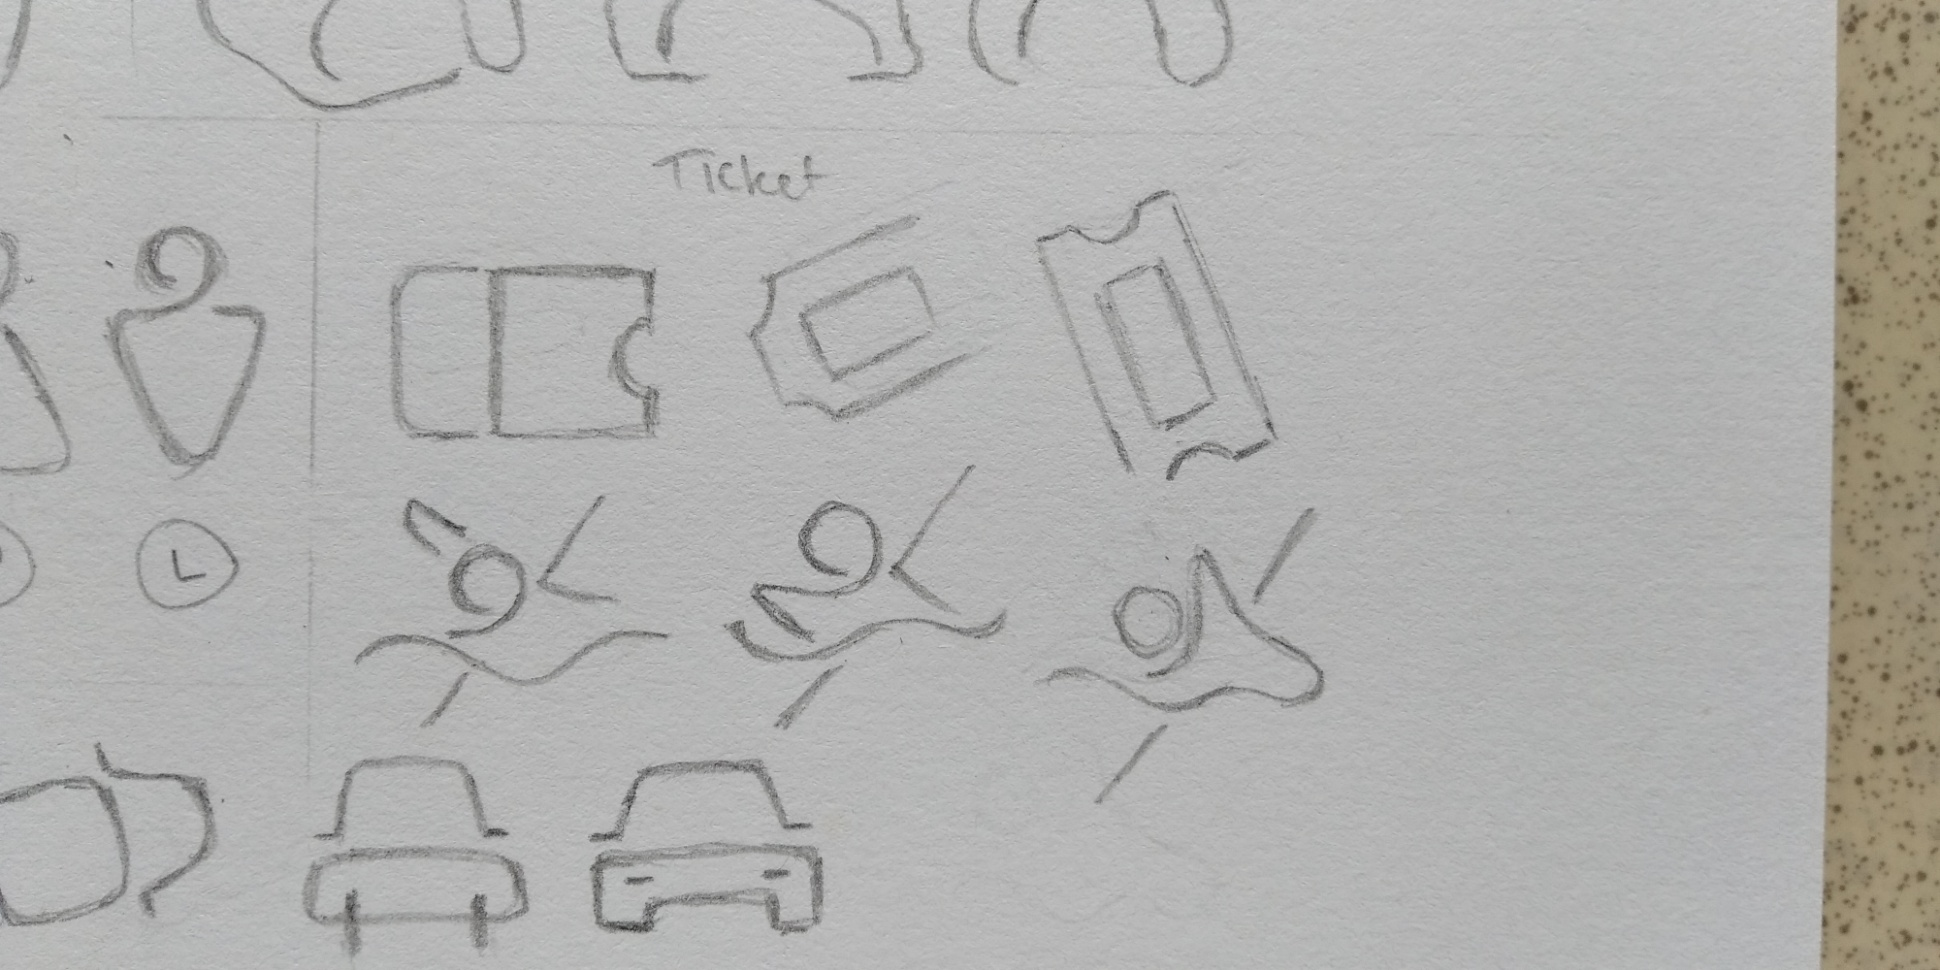 Ticket
L